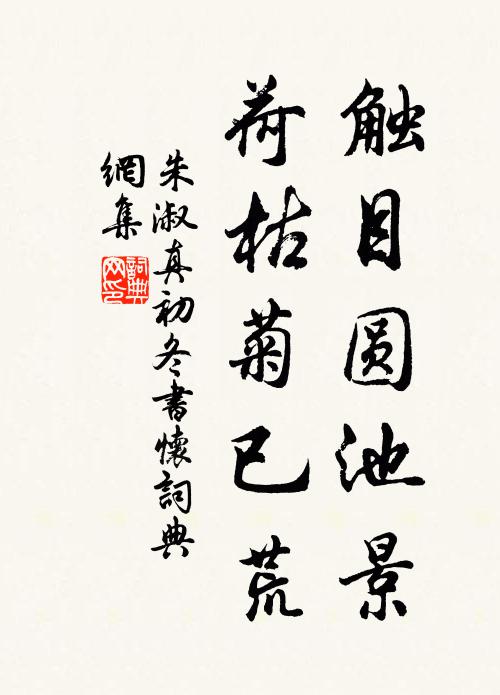 触目圆池景
荷枯菊已荒
朱淑真初冬書懷詞典
網集
詞典
网印